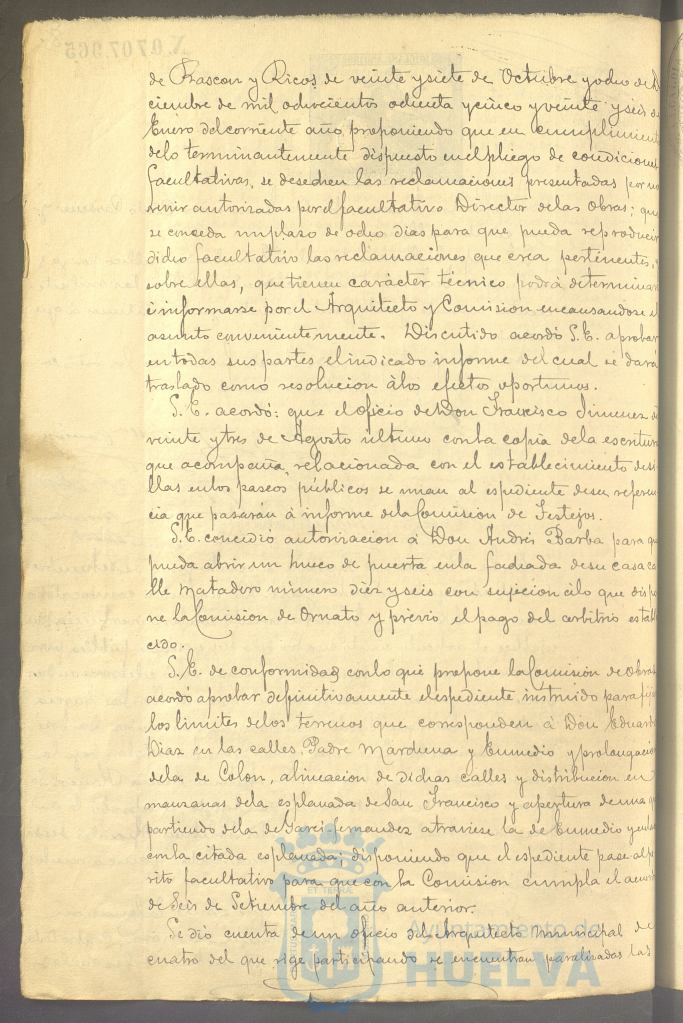 N. 0707.965
de Rascon y Ricos, de veinte y siete de Octubre y ocho de Di
ciembre de mil ochocientos ochenta y cinco y veinte y seis de
Enero del corriente año, proponiendo que en cumplimiento
de lo terminantemente dispuesto en el pliego de condiciones
facultativas, se desechen las reclamaciones presentadas por no
venir autorizadas por el facultativo Director de las Obras; que
se conceda un plazo de ocho dias para que pueda reproducir
dicho facultativo las reclamaciones que crea pertinentes, y
sobre ellas, que tienen carácter técnico podrá determinar
é informarse por el Arquitecto y Comision encausandose el
asunto convenientemente. Discutido acordó S.E. aprobar
en todas sus partes el indicado informe del cual se dará
traslado como resolucion á los efectos oportunos.
S.E. acordó: que el oficio de Don Francisco Jimenez de
veinte y tres de Agosto último con la copia de la escritura
que acompaña, relacionada con el establecimiento de si
llas en los paseos públicos se unan al espediente de su referen
cia que pasarán á informe de la Comision de Festejos.
S.E. concedió autorizacion á Don Andrés Barba para que
pueda abrir un hueco de puerta en la fachada de su casa ca
lle Matadero número diez y seis con sujecion á lo que dispo
ne la Comision de Ornato y previo el pago del arbitrio estable
cido.
S.E. de conformidad con lo que propone la Comision de Obras
acordó aprobar definitivamente el espediente instruido para fijar
los limites de los terrenos que corresponden á Don Eduardo
Diaz en las calles Padre Marchena y Enmedio y prolongacion
de la de Colon, alineacion de dichas calles y distribucion en
manzanas de la esplanada de San Francisco y apertura de una que
partiendo de la de Garci-Fernandez atraviese la de Enmedio y enlace
con la citada esplanada; disponiendo que el espediente pase al pe
rito facultativo para que con la Comision cumpla el acuerdo
de Seis de Setiembre del año anterior.
Se dió cuenta de un oficio del Arquitecto municipal de
cuatro del que rige participando se encuentran paralizadas las
Ayuntamiento de
HUELVA